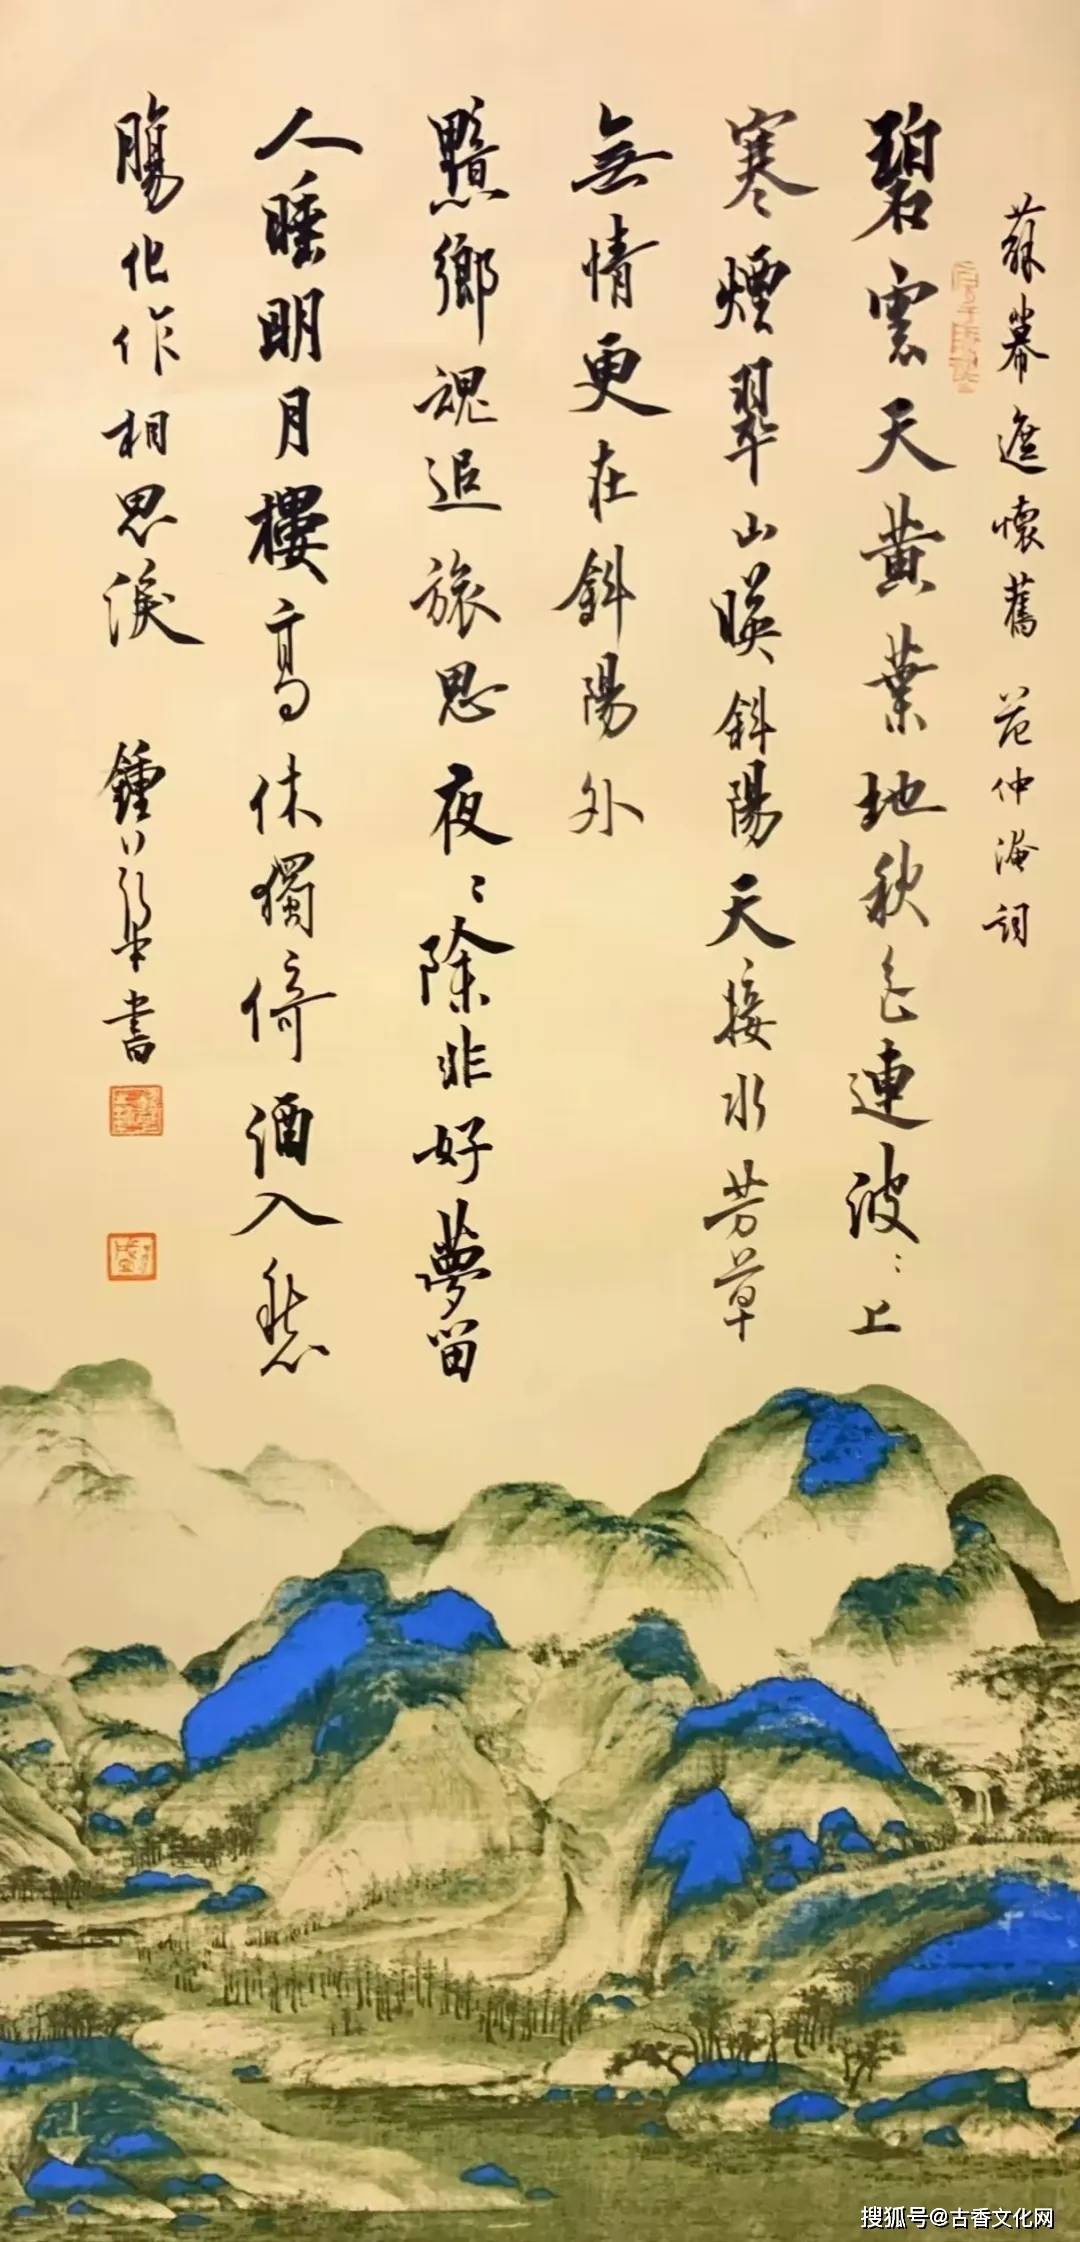 蘇幕遮懷舊 范仲淹詞
碧雲天黃葉地秋色連波〻上
寒煙翠山暎斜陽天接水芳草
無情更在斜陽外
黯鄉魂追旅思夜〻除非好夢留
人睡明月樓高休獨倚酒入愁
腸化作相思淚 鍾 書
搜狐号@古香文化网